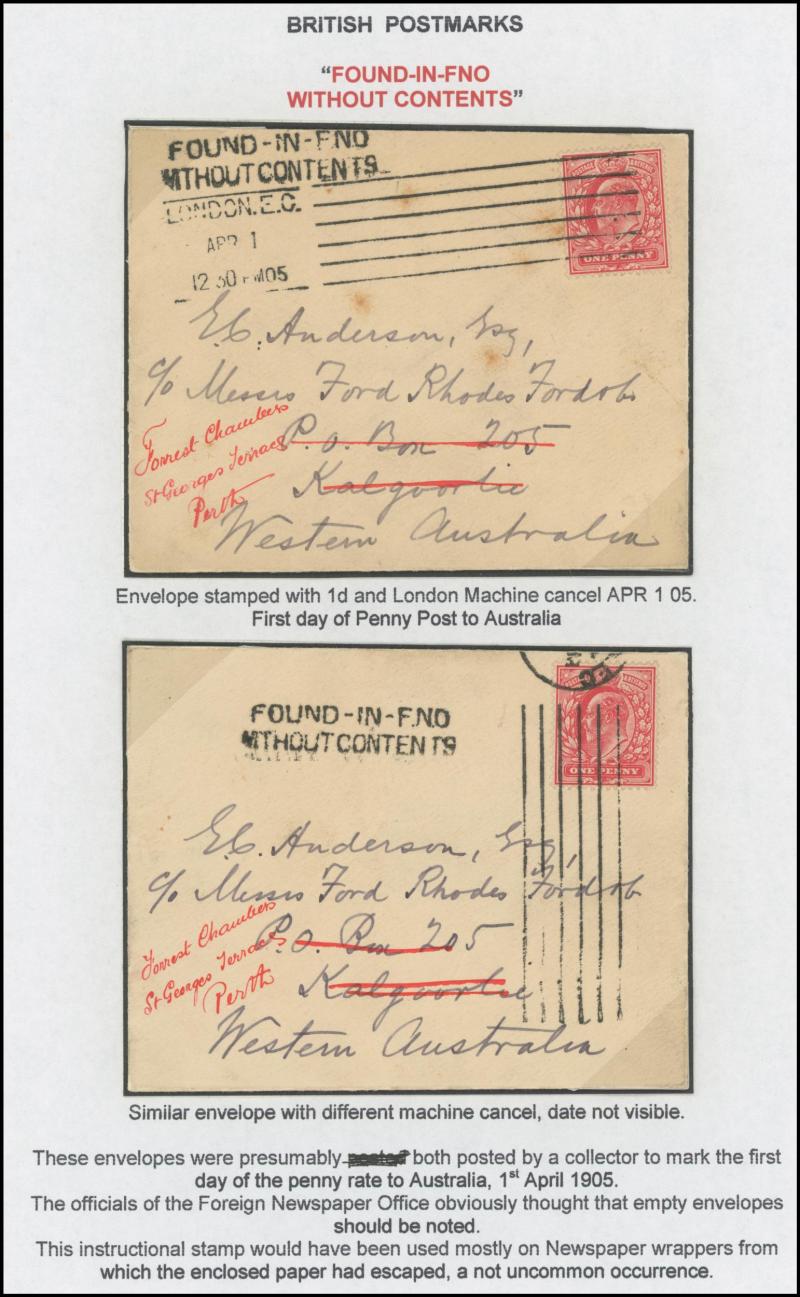 BRITISH POSTMARKS
“FOUND-IN-FNO
WITHOUT CONTENTS”
FOUND-IN-F.NO
WITHOUT CONTENTS
LONDON.E.C.
APR 1
12 30 PM 05
POSTAGE REVENUE
ONE PENNY
E.C. Anderson, Esq,
c/o Messrs Ford Rhodes Ford & Co
P.O. Box 205
Kalgoorlie
Forrest Chambers
St Georges Terrace
Perth
Western Australia
Envelope stamped with 1d and London Machine cancel APR 1 05.
First day of Penny Post to Australia
FOUND-IN-F.NO
WITHOUT CONTENTS
POSTAGE REVENUE
ONE PENNY
E.C. Anderson, Esq,
c/o Messrs Ford Rhodes Ford & Co
P.O. Box 205
Kalgoorlie
Forrest Chambers
St Georges Terrace
Perth
Western Australia
Similar envelope with different machine cancel, date not visible.
These envelopes were presumably posted both posted by a collector to mark the first
day of the penny rate to Australia, 1st April 1905.
The officials of the Foreign Newspaper Office obviously thought that empty envelopes
should be noted.
This instructional stamp would have been used mostly on Newspaper wrappers from
which the enclosed paper had escaped, a not uncommon occurrence.